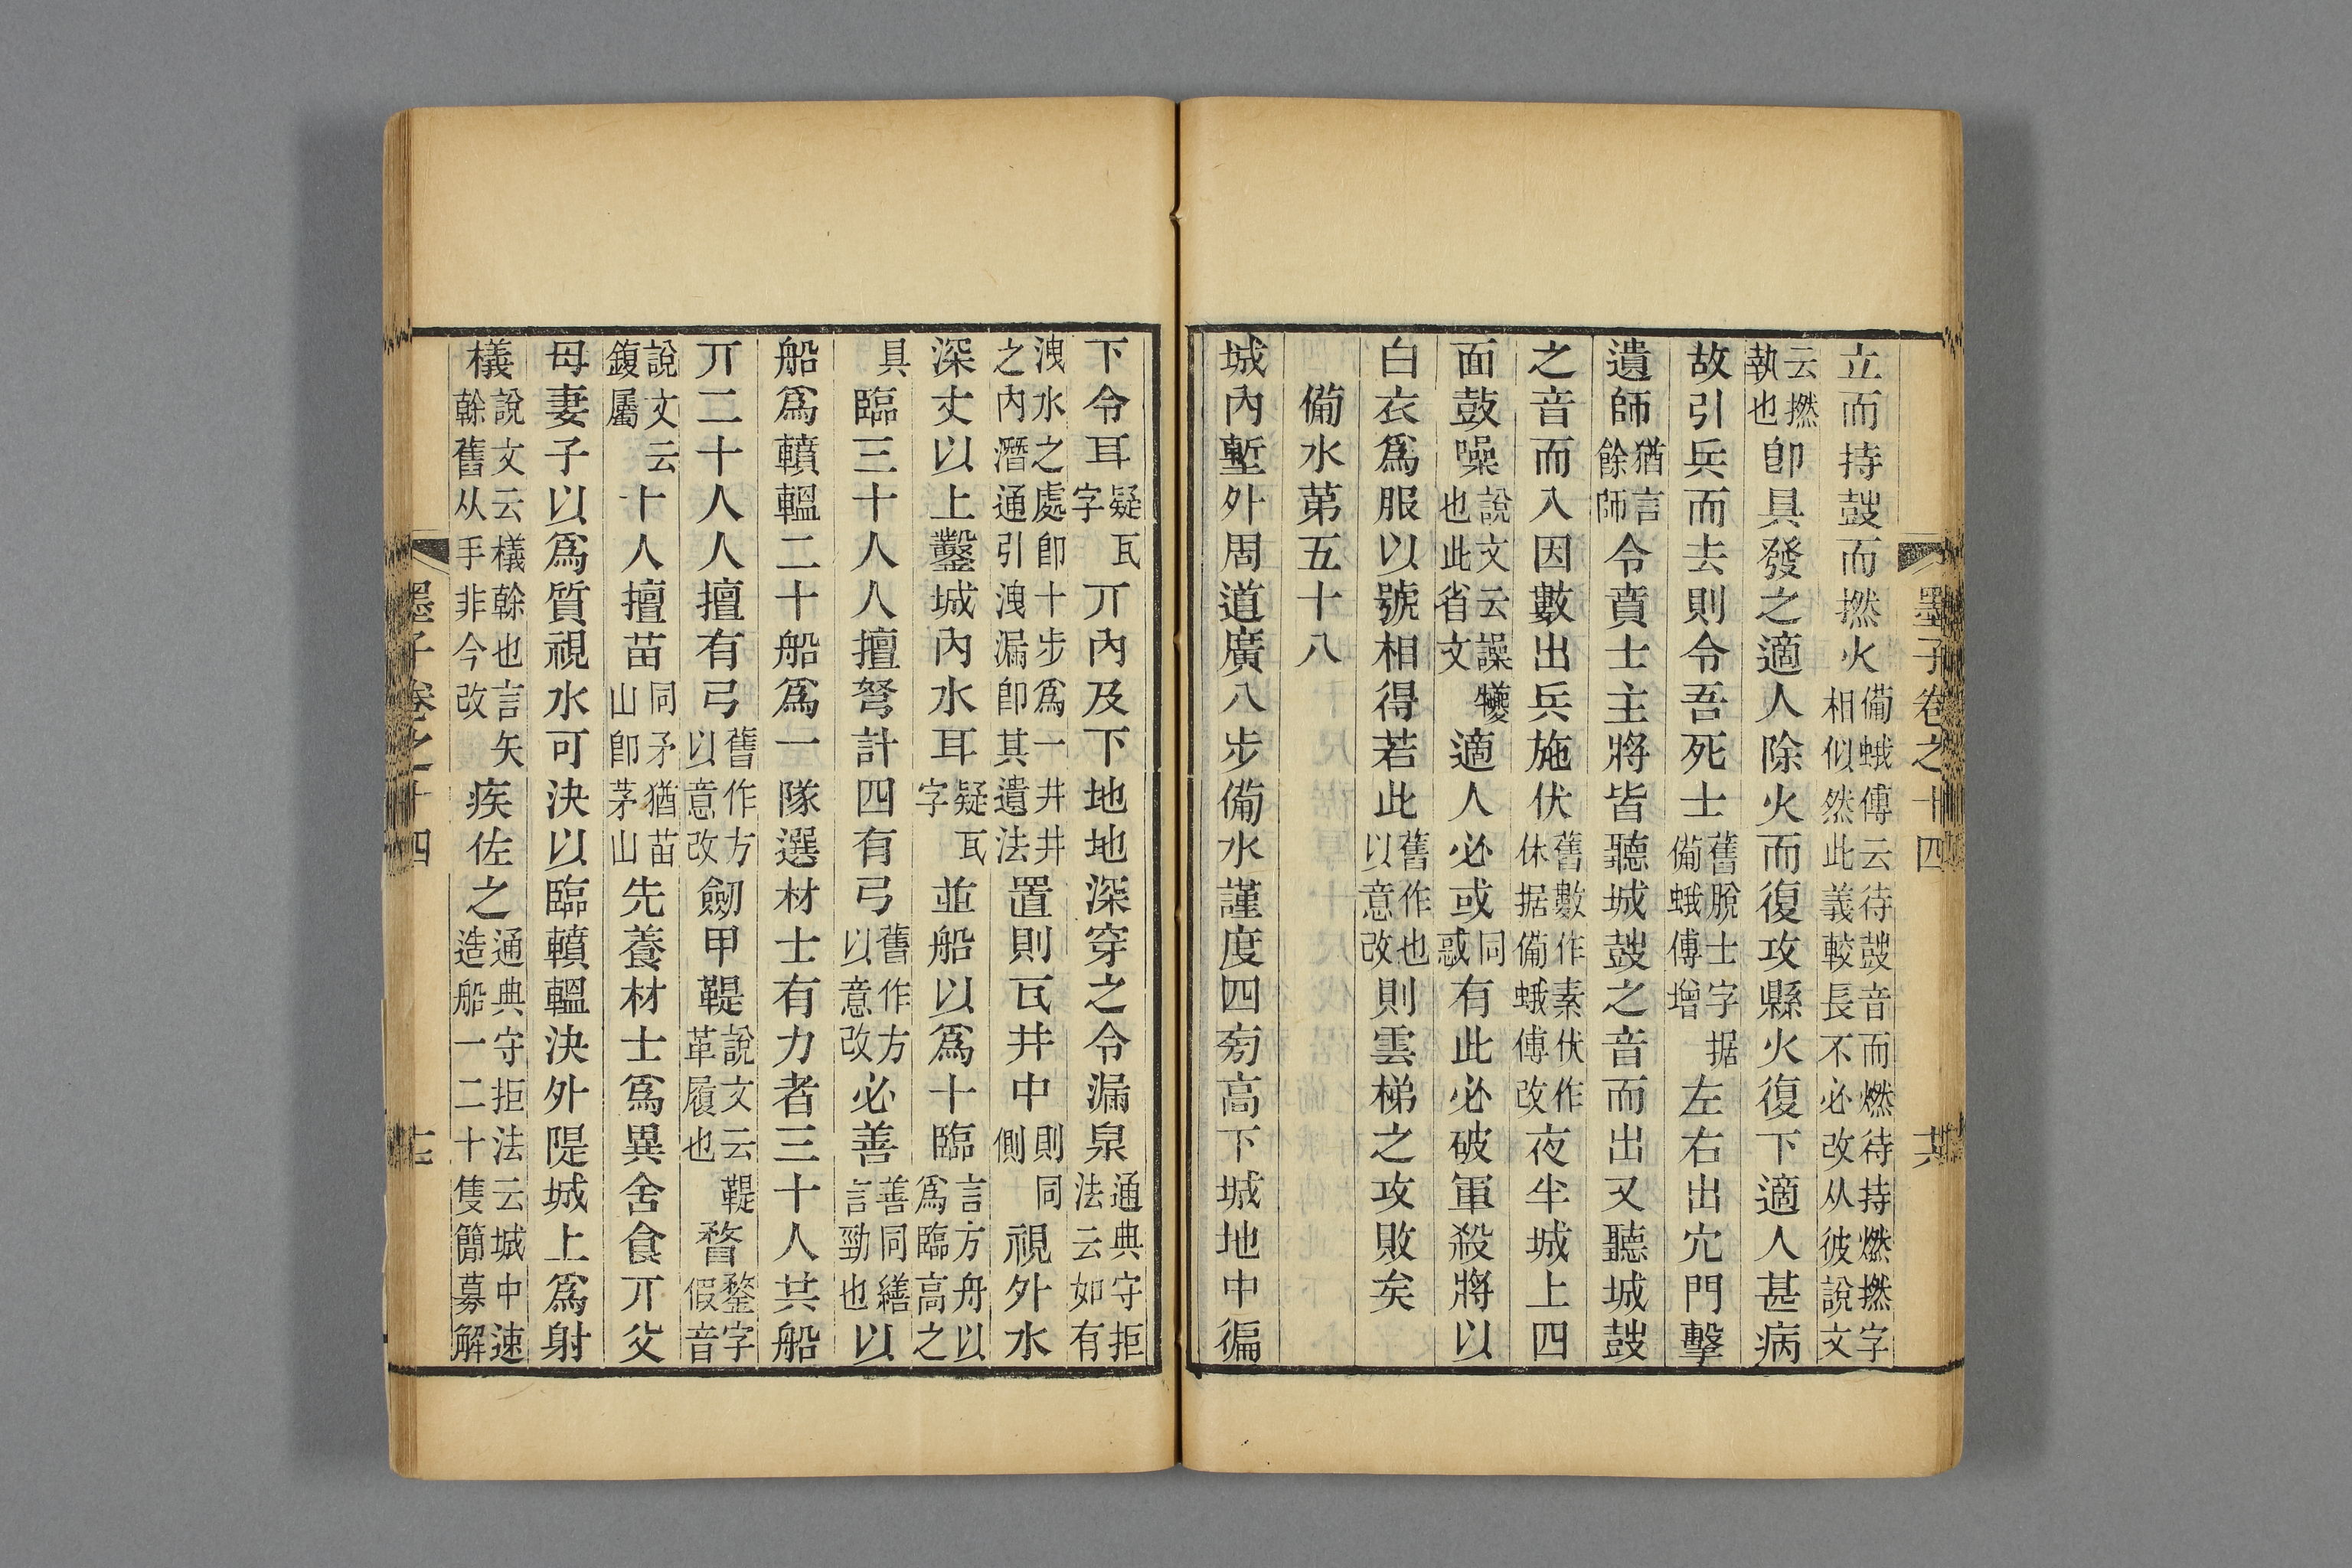 墨子卷之十四
立而持鼓而撚火備蛾傅云待鼓音而燃待持燃撚字相似然此義較長不必改从彼說文
云撚執也卽具發之適人除火而復攻縣火復下適人甚病
故引兵而去則令吾死士舊脫士字据備蛾傅增左右出穴門擊
遺師猶言餘師令賁士主將皆聽城鼓之音而出又聽城鼓
之音而入因數出兵施伏舊數作素伏作休据備蛾傅改夜半城上四
面鼓噪說文云譟擾也此省文適人必或同惑有此必破軍殺將以
白衣爲服以號相得若此舊作也以意改則雲梯之攻敗矣
備水第五十八
城內塹外周道廣八步備水謹度四旁高下城地中徧
下令耳疑瓦字丌內及下地地深穿之令漏泉通典守拒法云如有
洩水之處卽十步爲一井井之內潛通引洩漏卽其遺法置則瓦井中則同側視外水
深丈以上鑿城內水耳疑瓦字並船以爲十臨言方舟以爲臨高之
具臨三十人人擅弩計四有弓舊作方以意改必善善同繕言勁也以
船爲轒轀二十船爲一隊選材士有力者三十人共船
丌二十人人擅有弓舊作方以意改劒甲鞮說文云鞮革履也瞀鍪字假音
說文云鍑屬十人擅苗同矛猶苗山卽茅山先養材士爲異舍食丌父
母妻子以爲質視水可決以臨轒轀決外隄城上爲射
㰕說文云㰕榦也言矢榦舊从手非今改疾佐之通典守拒法云城中速造船一二十隻簡募解
墨子卷之十四